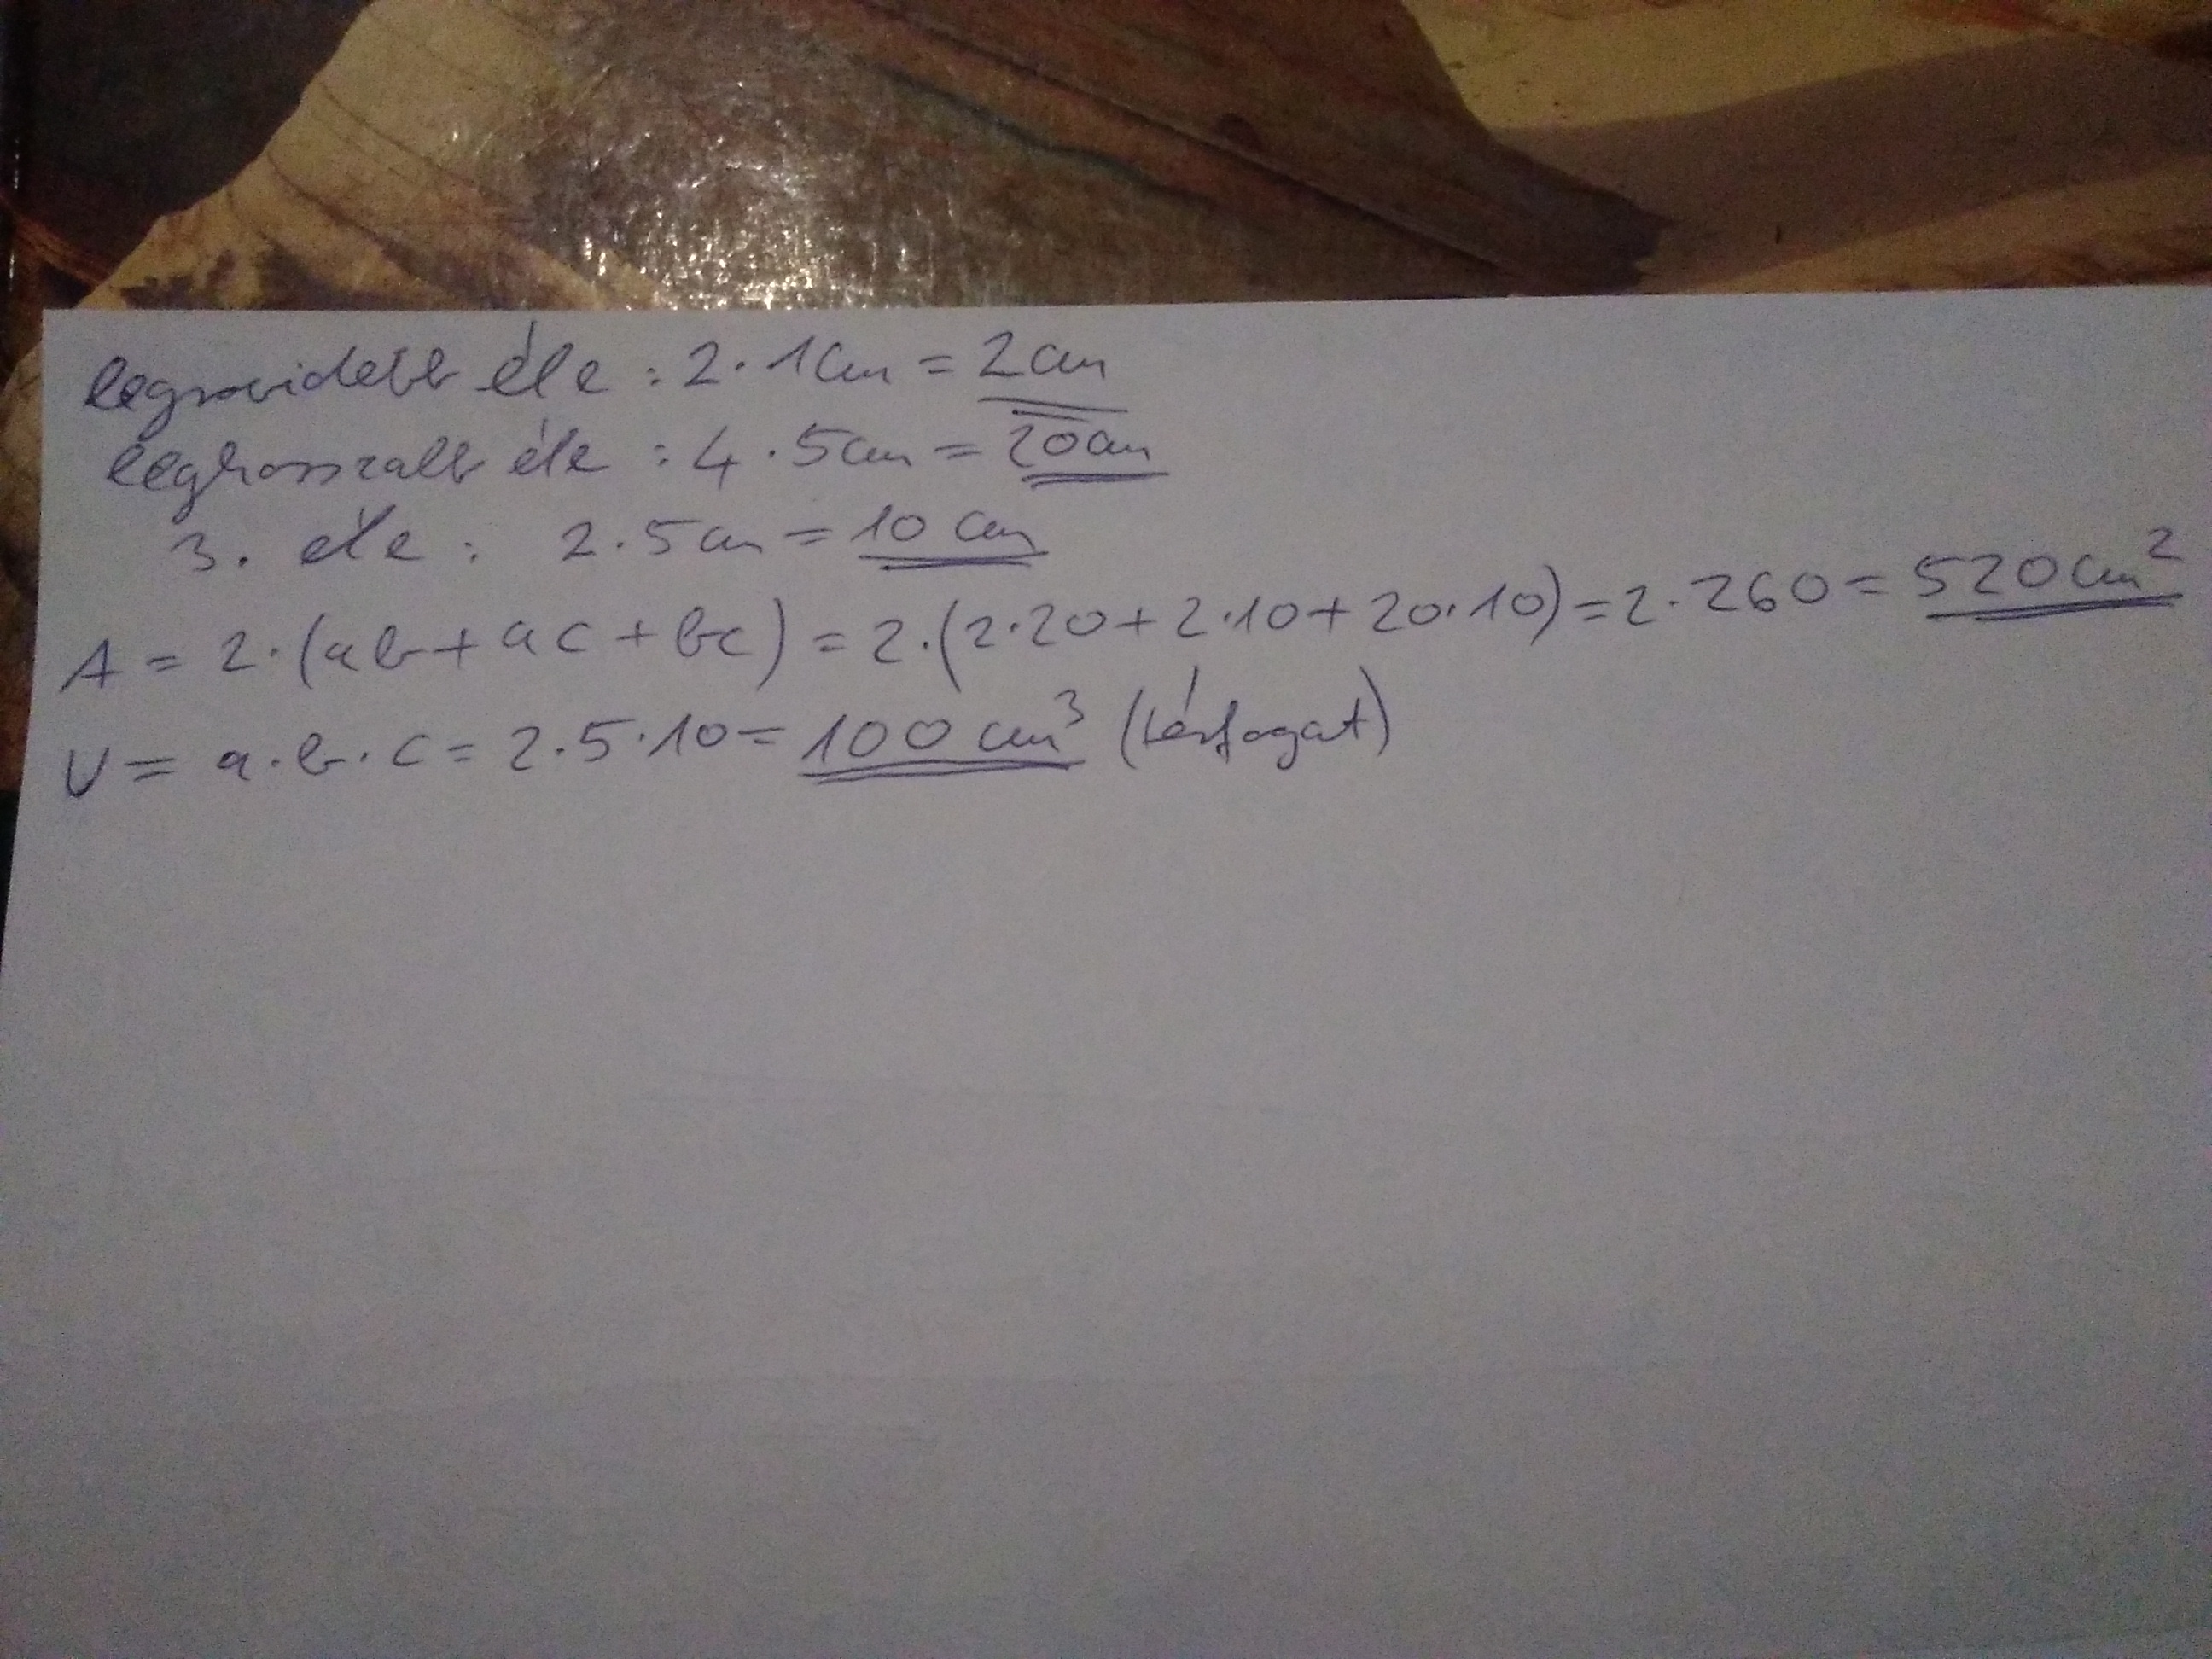 legrövidebb éle : 2 · 1cm = 2cm
leghosszabb éle : 4 · 5cm = 20cm
3. éle : 2 · 5cm = 10 cm
A = 2·(ab+ac+bc) = 2·(2·20+2·10+20·10) = 2·260 = 520cm²
V = a·b·c = 2·5·10 = 100 cm³ (térfogat)